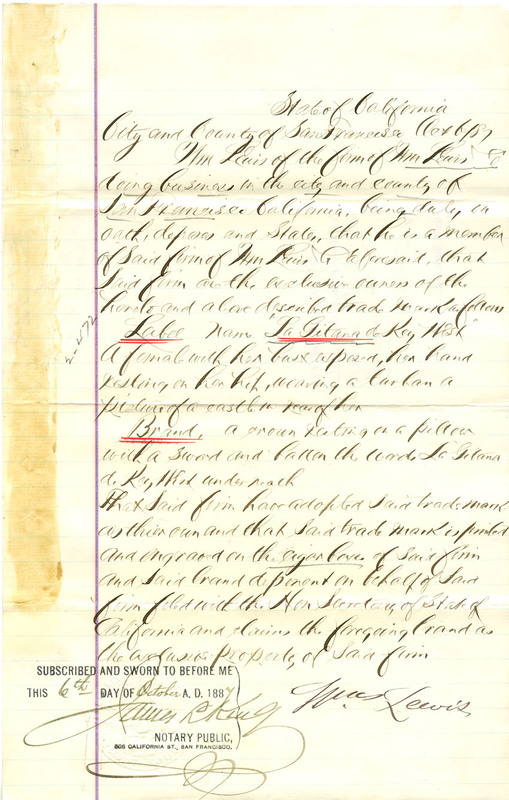 State of California
City and County of San Francisco Oct 6/87
Wm Lewis of the firm of Wm Lewis & Co
doing business in the city and county of
San Francisco California, being duly on
oath, deposes and States, that he is a member
of Said firm of Wm Lewis & Co aforesaid, that
Said firm are the exclusive owners of the
hereto and above described trade mark as follows
Label Name "La Gitana de Key West"
A female with her bust exposed, her hand
resting on her hip, wearing a turban a
picture of a castle in rear of her
Brand, a crown resting on a pillow
with a sword and baton the words La Gitana
de Key West underneath
That Said firm have adopted Said trade mark
as their own and that Said trade mark is printed
and engraved on the cigar boxes of Said firm
and Said brand deponent on behalf of Said
firm filed with the Hon Secretary of State of
California and claims the foregoing brand as
the exclusive property of Said firm
Wm Lewis
SUBSCRIBED AND SWORN TO BEFORE ME
THIS 6th DAY OF October A. D. 1887
James L King
NOTARY PUBLIC,
605 CALIFORNIA ST., SAN FRANCISCO.